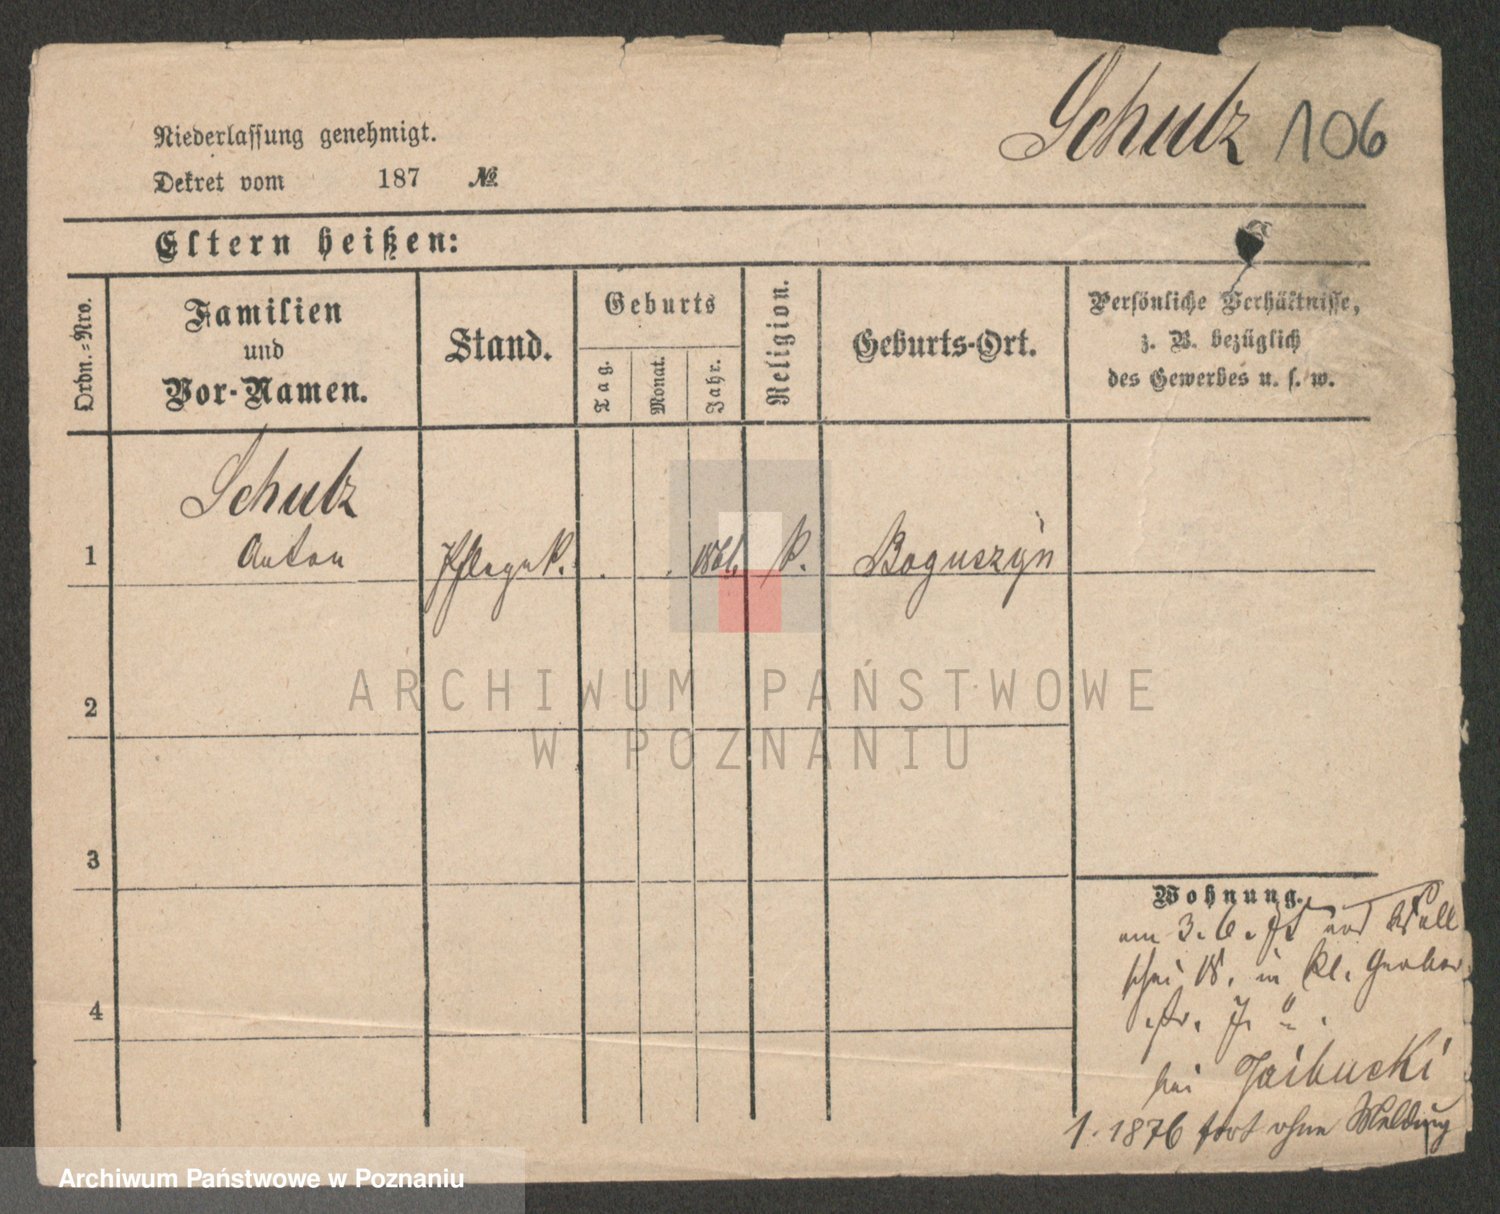 Schulz 106
Niederlassung genehmigt.
Dekret vom 187 №
Eltern heißen:
Ordn.-Nro.
Familien
und
Vor-Namen.
Stand.
Geburts
Tag.
Monat.
Jahr.
Religion.
Geburts-Ort.
Persönliche Verhältnisse,
z. B. bezüglich
des Gewerbes u. s. w.
Schulz
1 Anton K. Boguszyn
2
3
4
Wohnung.
am 3. 6. von Wall
schei 18. in kl. Gerber
str. 7.
bei
1. 1876 fort ohne Meldung
ARCHIWUM PAŃSTWOWE
W POZNANIU
Archiwum Państwowe w Poznaniu